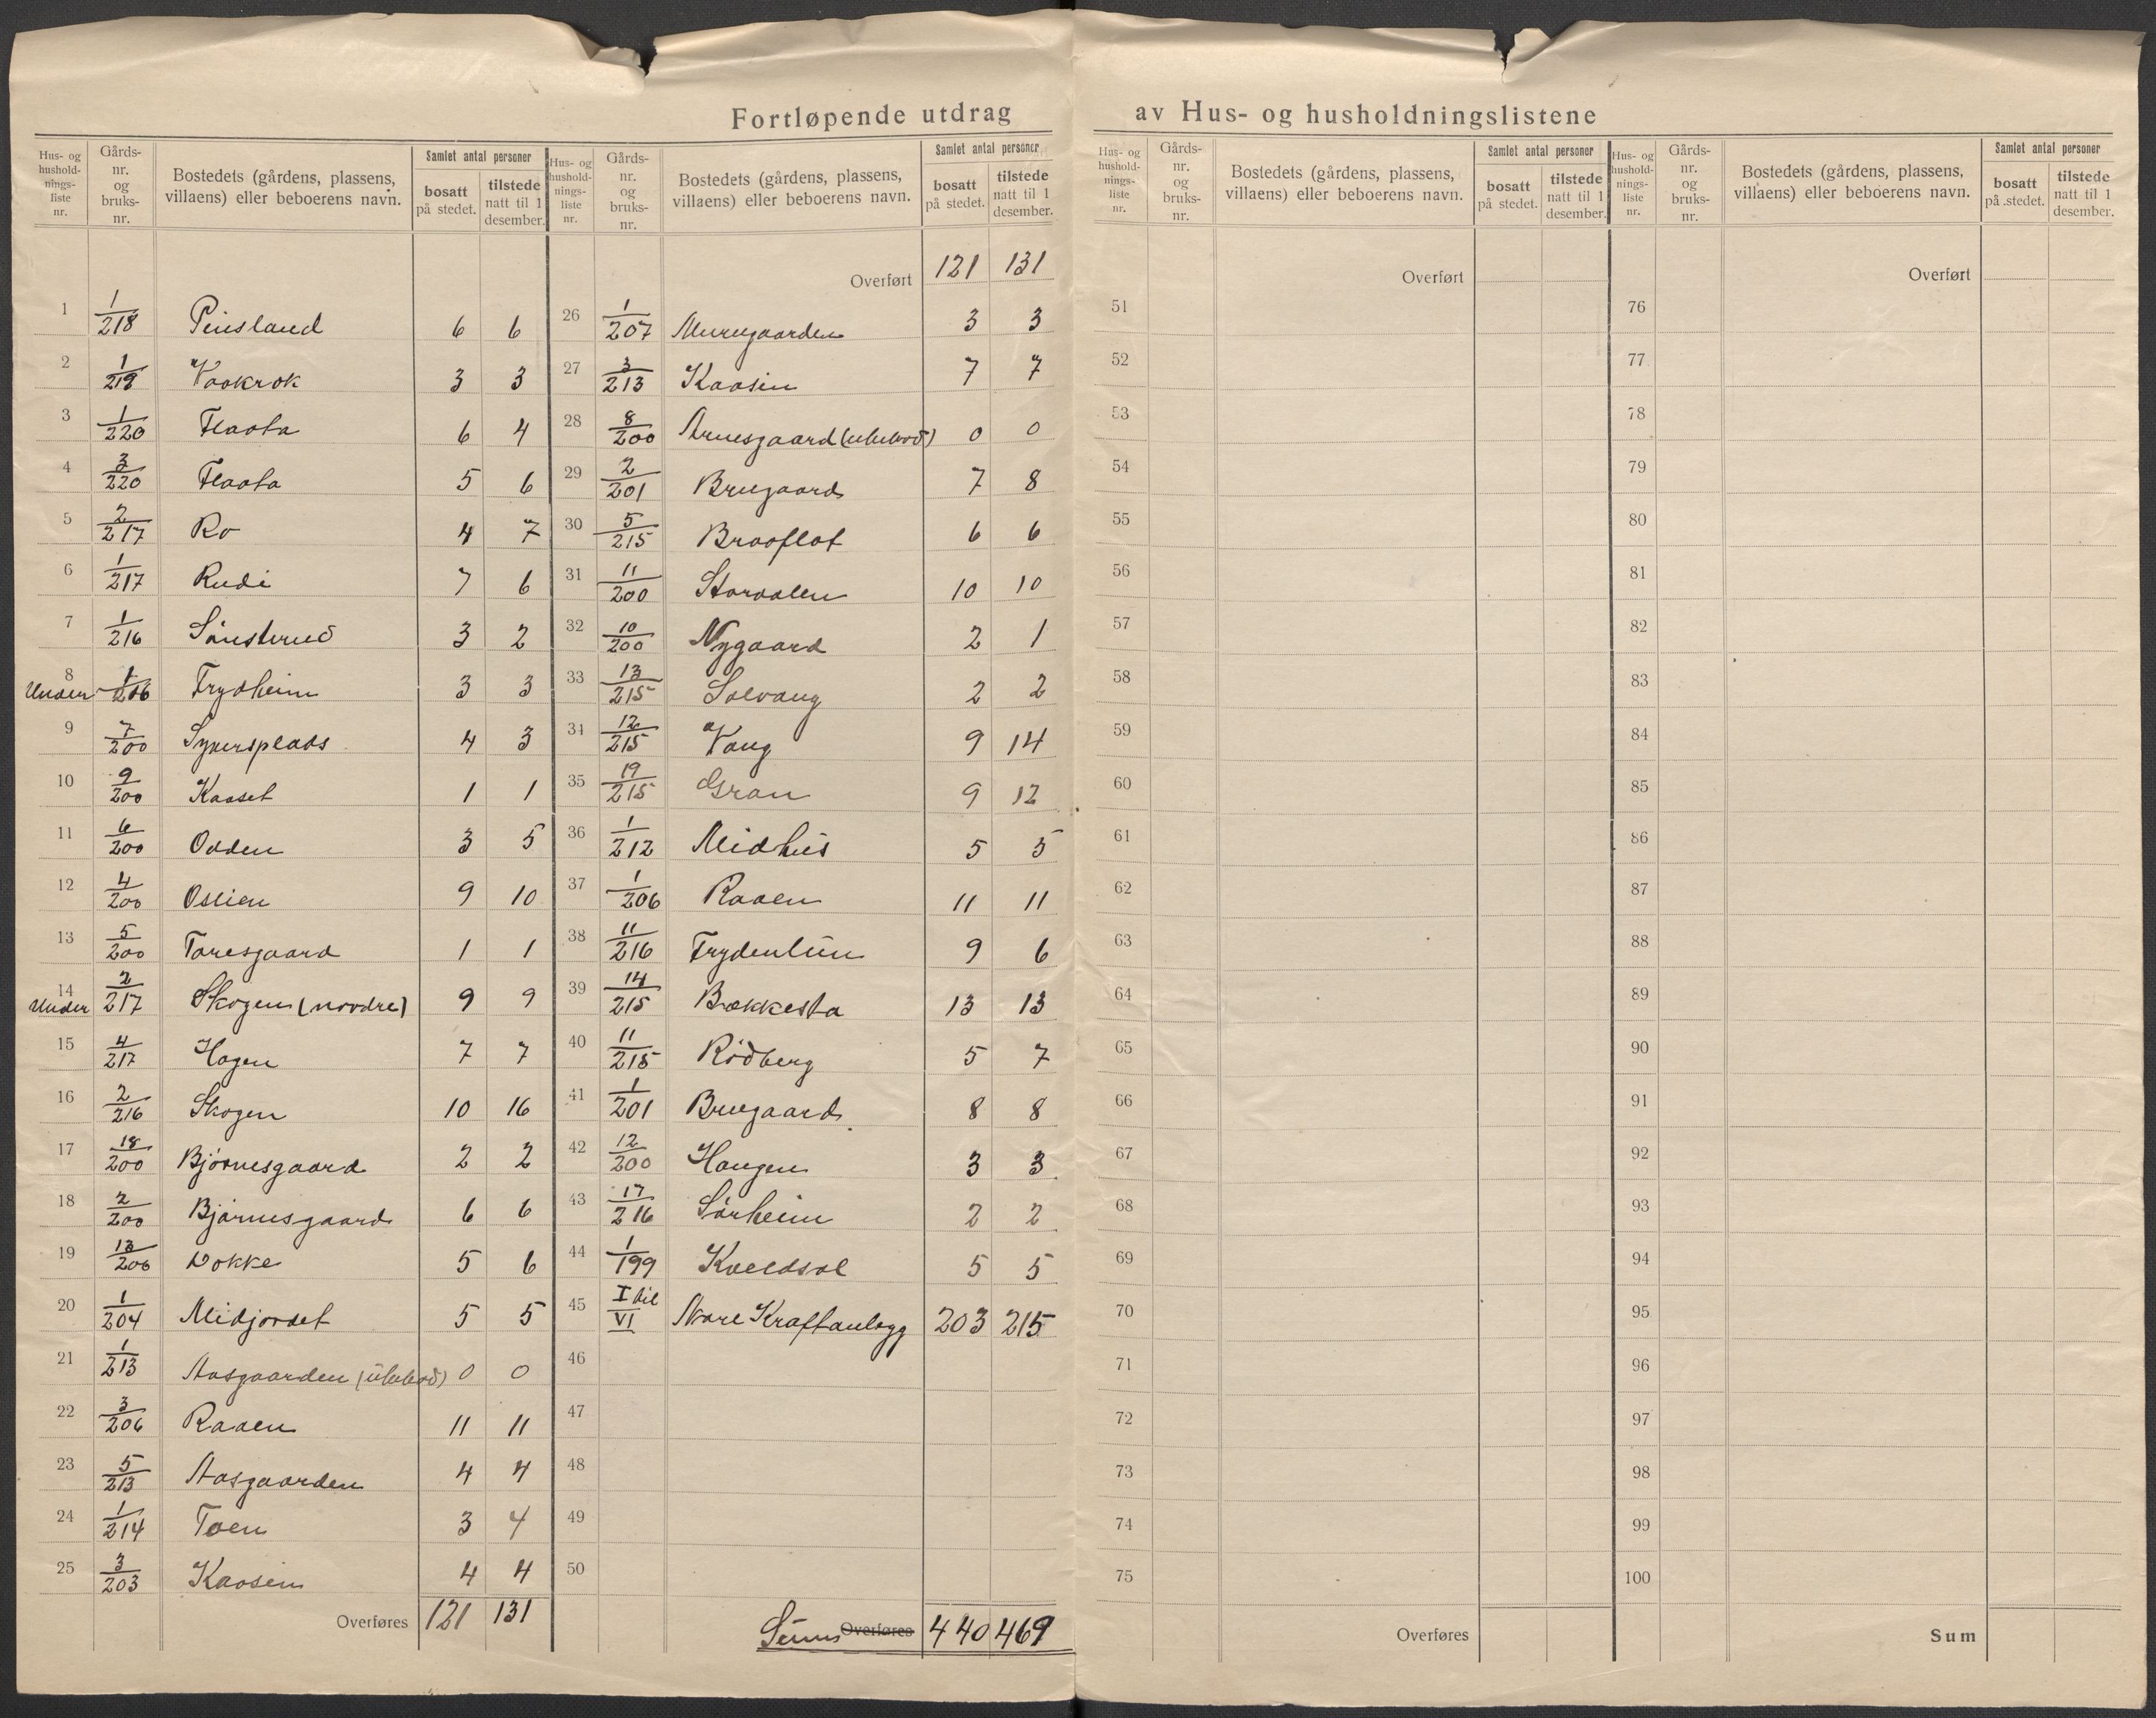 Fortløpende utdrag av Hus- og husholdningslistene
Hus- og hushold- nings- liste nr. | Gårds- nr. og bruks- nr. | Bostedets (gårdens, plassens, villaens) eller beboerens navn. | Samlet antal personer | bosatt på stedet. | tilstede natt til 1 desember.
1 1/218 6 6
2 1/219 Vaokrok 3 3
3 1/220 Flaata 6 4
4 3/220 Flaata 5 6
5 2/217 Ro 4 7
6 1/217 Rudi 7 6
7 1/216 Sønsterud 3 2
8 Under 1/216 Frydheim 3 3
9 7/200 4 3
10 9/200 Kaaset 1 1
11 6/200 Odden 3 5
12 4/200 Oslien 9 10
13 5/200 Toresgaard 1 1
14 Under 2/217 Skogen (nordre) 9 9
15 4/217 Hagen 7 7
16 2/216 Skogen 10 16
17 18/200 Bjørnesgaard 2 2
18 2/200 Bjørnesgaard 6 6
19 13/200 Dokke 5 6
20 1/204 Midjordet 5 5
21 1/213 Aasgaarden (ubebod) 0 0
22 3/206 Raaen 11 11
23 5/213 Aasgaarden 4 4
24 1/214 Toen 3 4
25 3/203 Kaasin 4 4
Overføres 121 131
Hus- og hushold- nings- liste nr. | Gårds- nr. og bruks- nr. | Bostedets (gårdens, plassens, villaens) eller beboerens navn. | Samlet antal personer | bosatt på stedet. | tilstede natt til 1 desember.
Overført 121 131
26 1/207 3 3
27 3/213 Kaasin 7 7
28 8/200 Arnesgaard (ubebod) 0 0
29 2/201 Brugaard 7 8
30 5/215 Braaflot 6 6
31 11/200 Storaalen 10 10
32 10/200 Nygaard 2 1
33 13/215 Solvang 2 2
34 12/215 Vang 9 14
35 19/215 Gran 9 12
36 1/212 Midhus 5 5
37 1/206 Raaen 11 11
38 11/216 Frydenlun 9 6
39 14/215 Bækkesta 13 13
40 11/215 Rødberg 5 7
41 1/201 Brugaard 8 8
42 12/200 Haugen 3 3
43 17/216 Sørheim 2 2
44 1/199 Kveldsol 5 5
45 I til VI Nore Kraftanlegg 203 215
46
47
48
49
50
Sum Overføres 440 469
Hus- og hushold- nings- liste nr. | Gårds- nr. og bruks- nr. | Bostedets (gårdens, plassens, villaens) eller beboerens navn. | Samlet antal personer | bosatt på stedet. | tilstede natt til 1 desember.
Overført
51
52
53
54
55
56
57
58
59
60
61
62
63
64
65
66
67
68
69
70
71
72
73
74
75
Overføres
Hus- og hushold- nings- liste nr. | Gårds- nr. og bruks- nr. | Bostedets (gårdens, plassens, villaens) eller beboerens navn. | Samlet antal personer | bosatt på stedet. | tilstede natt til 1 desember.
Overført
76
77
78
79
80
81
82
83
84
85
86
87
88
89
90
91
92
93
94
95
96
97
98
99
100
Sum